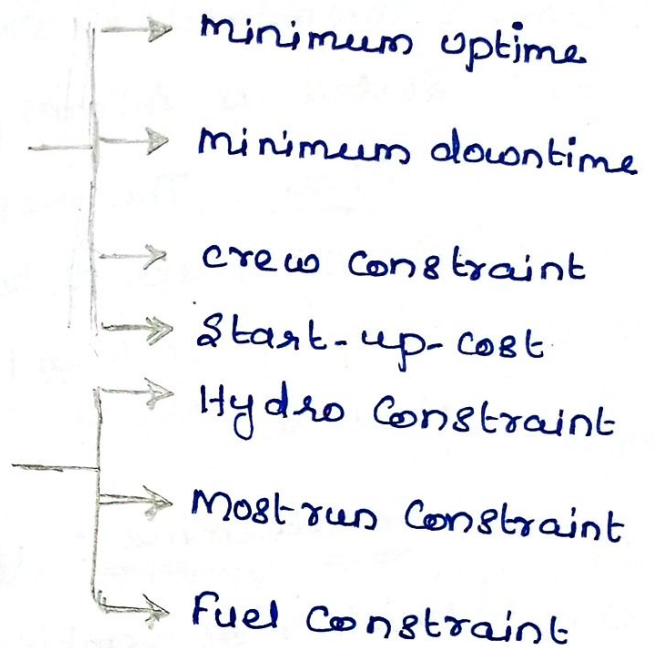 minimum uptime
minimum downtime
crew constraint
Start-up-cost
Hydro Constraint
Most run Constraint
Fuel Constraint